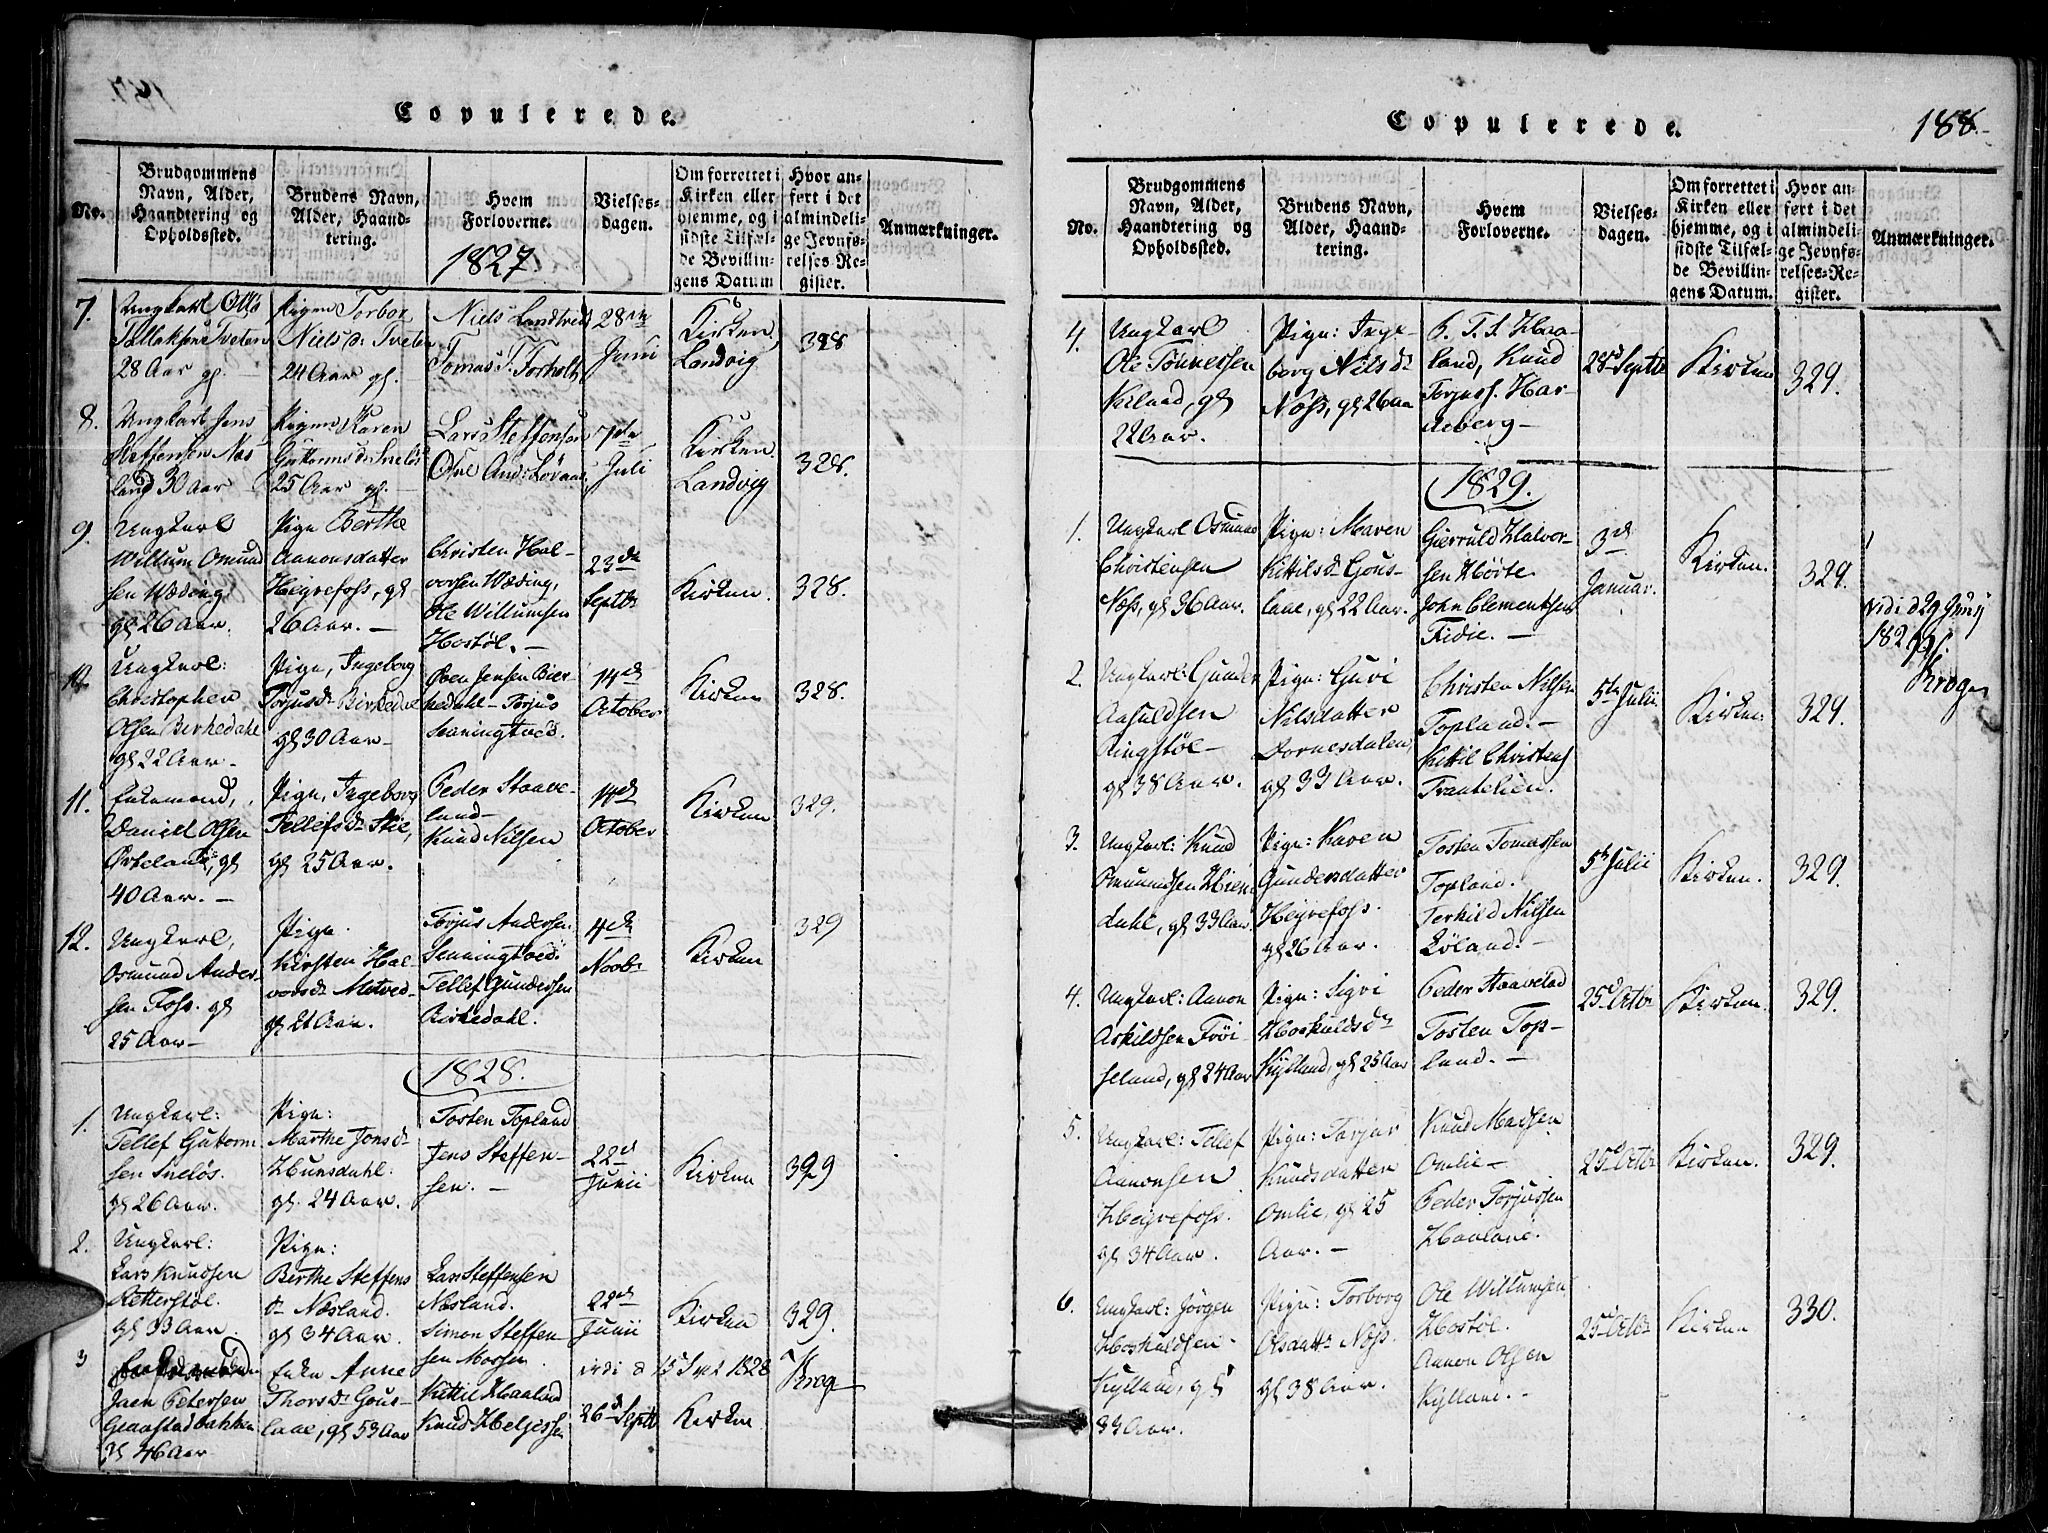 Copulerede.
No.
Brudgommens Navn, Alder, Haandtering og Opholdssted.
Brudens Navn, Alder, Haandtering.
Hvem Forloverne.
Vielsesdagen.
Om forrettet i Kirken eller hjemme, og i sidste Tilfælde Bevillingens Datum
Hvor anført i det almindelige Jevnførelses-Register.
Anmærkninger.
1827
7.
Ungkarl Olle
Tallaksen Tveten
28 Aar gl.
Pigen Torbor
Nielsd: Tveten
24 Aar gl.
Niels Landtved
Tomas T. Forholt
28de
Juni
Kirken
Landvig
328
8.
Ungkarl Jens
Steffensen Næs
land 30 Aar
Pigen Karen
Guttormsd: Sneløs
25 Aar gl.
Lars Steffensen
7de
Juli
Kirken
Landvig
328.
9.
Ungkarl
Willum Omund
sen Wæding
gl 26 Aar.
Pige Berthe
Aanonsdatter
Heyrefoss, gl
26 Aar. —
Christen Hal-
vorsen Wæding,
Ole Willumsen
Hostøl. —
23de
Septbr
Kirken.
328.
10
Ungkarl:
Christopher
Olsen Birkedahl
gl 22 Aar.
Pige, Ingeborg
Torjusdr Birkedal
gl 30 Aar —
Oben Jensen Bier-
kedahl — Torjus
Senningtved.
14de
October
Kirken
328.
11.
Enkemand,
Daniel Olsen
gl
40 Aar. —
Pige, Ingeborg
Tellefsdr Stie,
gl 25 Aar.
Peder Staave-
land —
Knud Nilsen
14de
October
Kirken
329.
12.
Ungkarl,
Osmund Ander-
sen Foss. gl
25 Aar —
Pige
Kirsten Hal-
vorsdr Metved
gl 21 Aar.
Torjus Andersen
Senningtved
Tellef Gundersen
Birkedahl.
4de
Novbr
Kirken
329
1828.
1.
Ungkarl:
Tellef Guttorm
sen Sneløs.
gl 26 Aar.
Pige:
Marthe Jonsdr
Hunsdahl:
gl. 24 Aar.
Tosten Topland
Jens Steffen-
sen. —
22de
Junii
Kirken
329
2.
Ungkarl:
Lars Knudsen
Retterstøl.
gl 33 Aar
Pige:
Berthe Steffens
dr Næsland.
gl 34 Aar.
Lars Steffensen
Næsland.
Simon Steffen-
sen Mossen
22de
Junii
Kirken
329.
3
Enkemanden
Jaen Petersen
Graastadbakken
gl 46 Aar
Enke Anne
Thorsdr Gous-
laae, gl 53 Aar
Kittil Haaland
Knud Helgessen
vidi d 15 Sept 1828
Krog
26d Septbr
Kirken
Copulerede.
188.
No.
Brudgommens Navn, Alder, Haandtering og Opholdssted.
Brudens Navn, Alder, Haandtering.
Hvem Forloverne.
Vielsesdagen.
Om forrettet i Kirken eller hjemme, og i sidste Tilfælde Bevillingens Datum.
Hvor anført i det almindelige Jevnførelses-Register.
Anmærkninger.
4.
Ungkarl
Ole Tønnessen
gl
22 Aar.
Pige: Inge-
borg Nilsdr
Næss, gl 26 Aar
Haa-
land, Knud
Torjuss. Har-
Aeberg —
28d Septbr
Kirken
329.
1829.
1.
Ungkarl Osmund
Christensen
Næss, gl 26 Aar.
Pige: Maren
Kittilsdr Gous-
laae, gl 22 Aar.
Gierruld Halvor-
sen Hørte
John Clementsen
Fidie. —
3de
Januar.
Kirken.
329.
Vidi d 29 Junij
1829.
Krog
2.
Ungkarl: Gunder
Aasuldsen
Ringstøl —
gl 38 Aar.
Pige: Guri
Nilsdatter
Dornesdalen,
gl 33 Aar.
Christen Nilsen
Topland. —
Kittil Christens
Trantelien.
5te Julii
Kirken
329.
3.
Ungkarl: Knud
Osmundsen Hien
dahl, gl 33 Aar
Pige: Karen
Gundersdatter
Heyrefoss.
gl 26 Aar.
Tosten Tomassen
Topland.
Terkild Nilsen
Løland. —
5te Julii
Kirken.
329.
4.
Ungkarl: Aanon
Askildsen Frøi-
seland, gl 24 Aar
Pige: Sigri
Hoskuldsdr
Kylland, gl 25 Aar
Peder Staaveland
Tosten Top-
land. —
25d Octbr
Kirken.
329.
5.
Ungkarl: Tellef
Aanonsen
Heyrefoss.
gl 34 Aar.
Pige: Torjer
Knudsdatter
Omlie, gl 25
Aar. —
Knud Madsen
Omlie —
Peder Torjussen
Haaland.
25d Octbr
Kirken.
329.
6.
Ungkarl: Jørgen
Hoskuldsen
Kylland, gl
33 Aar.
Pige: Torborg
Olsdattr Næss.
gl 38 Aar.
Ole Willumsen
Hostøl.
Aanon Olsen
Kylland. —
25d Octbr
Kirken
330.